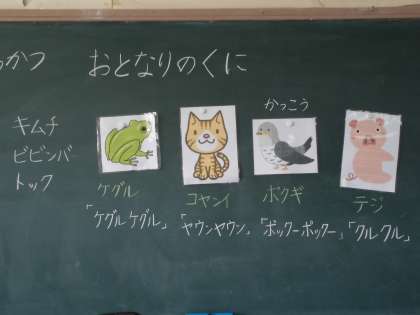 かつ
おとなりのくに
キムチ
ビビンバ
トック
かっこう
ケグル
コヤンイ
ポクギ
テジ
「ケグルケグル」
「ヤウンヤウン」
「ポックーポックー」
「クルクル」